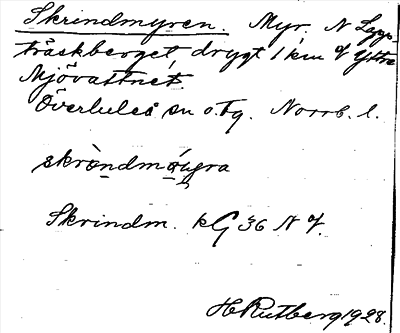 Skrindmyren. Myr, N Lapp-
träskberget, drygt 1 km V Yttre
Mjövattnet.
Överluleå sn o. tg. Norrb. l.
skrò̀ndmý̀ra
Skrindm. kG 36 N V.
H Rutberg 1928.